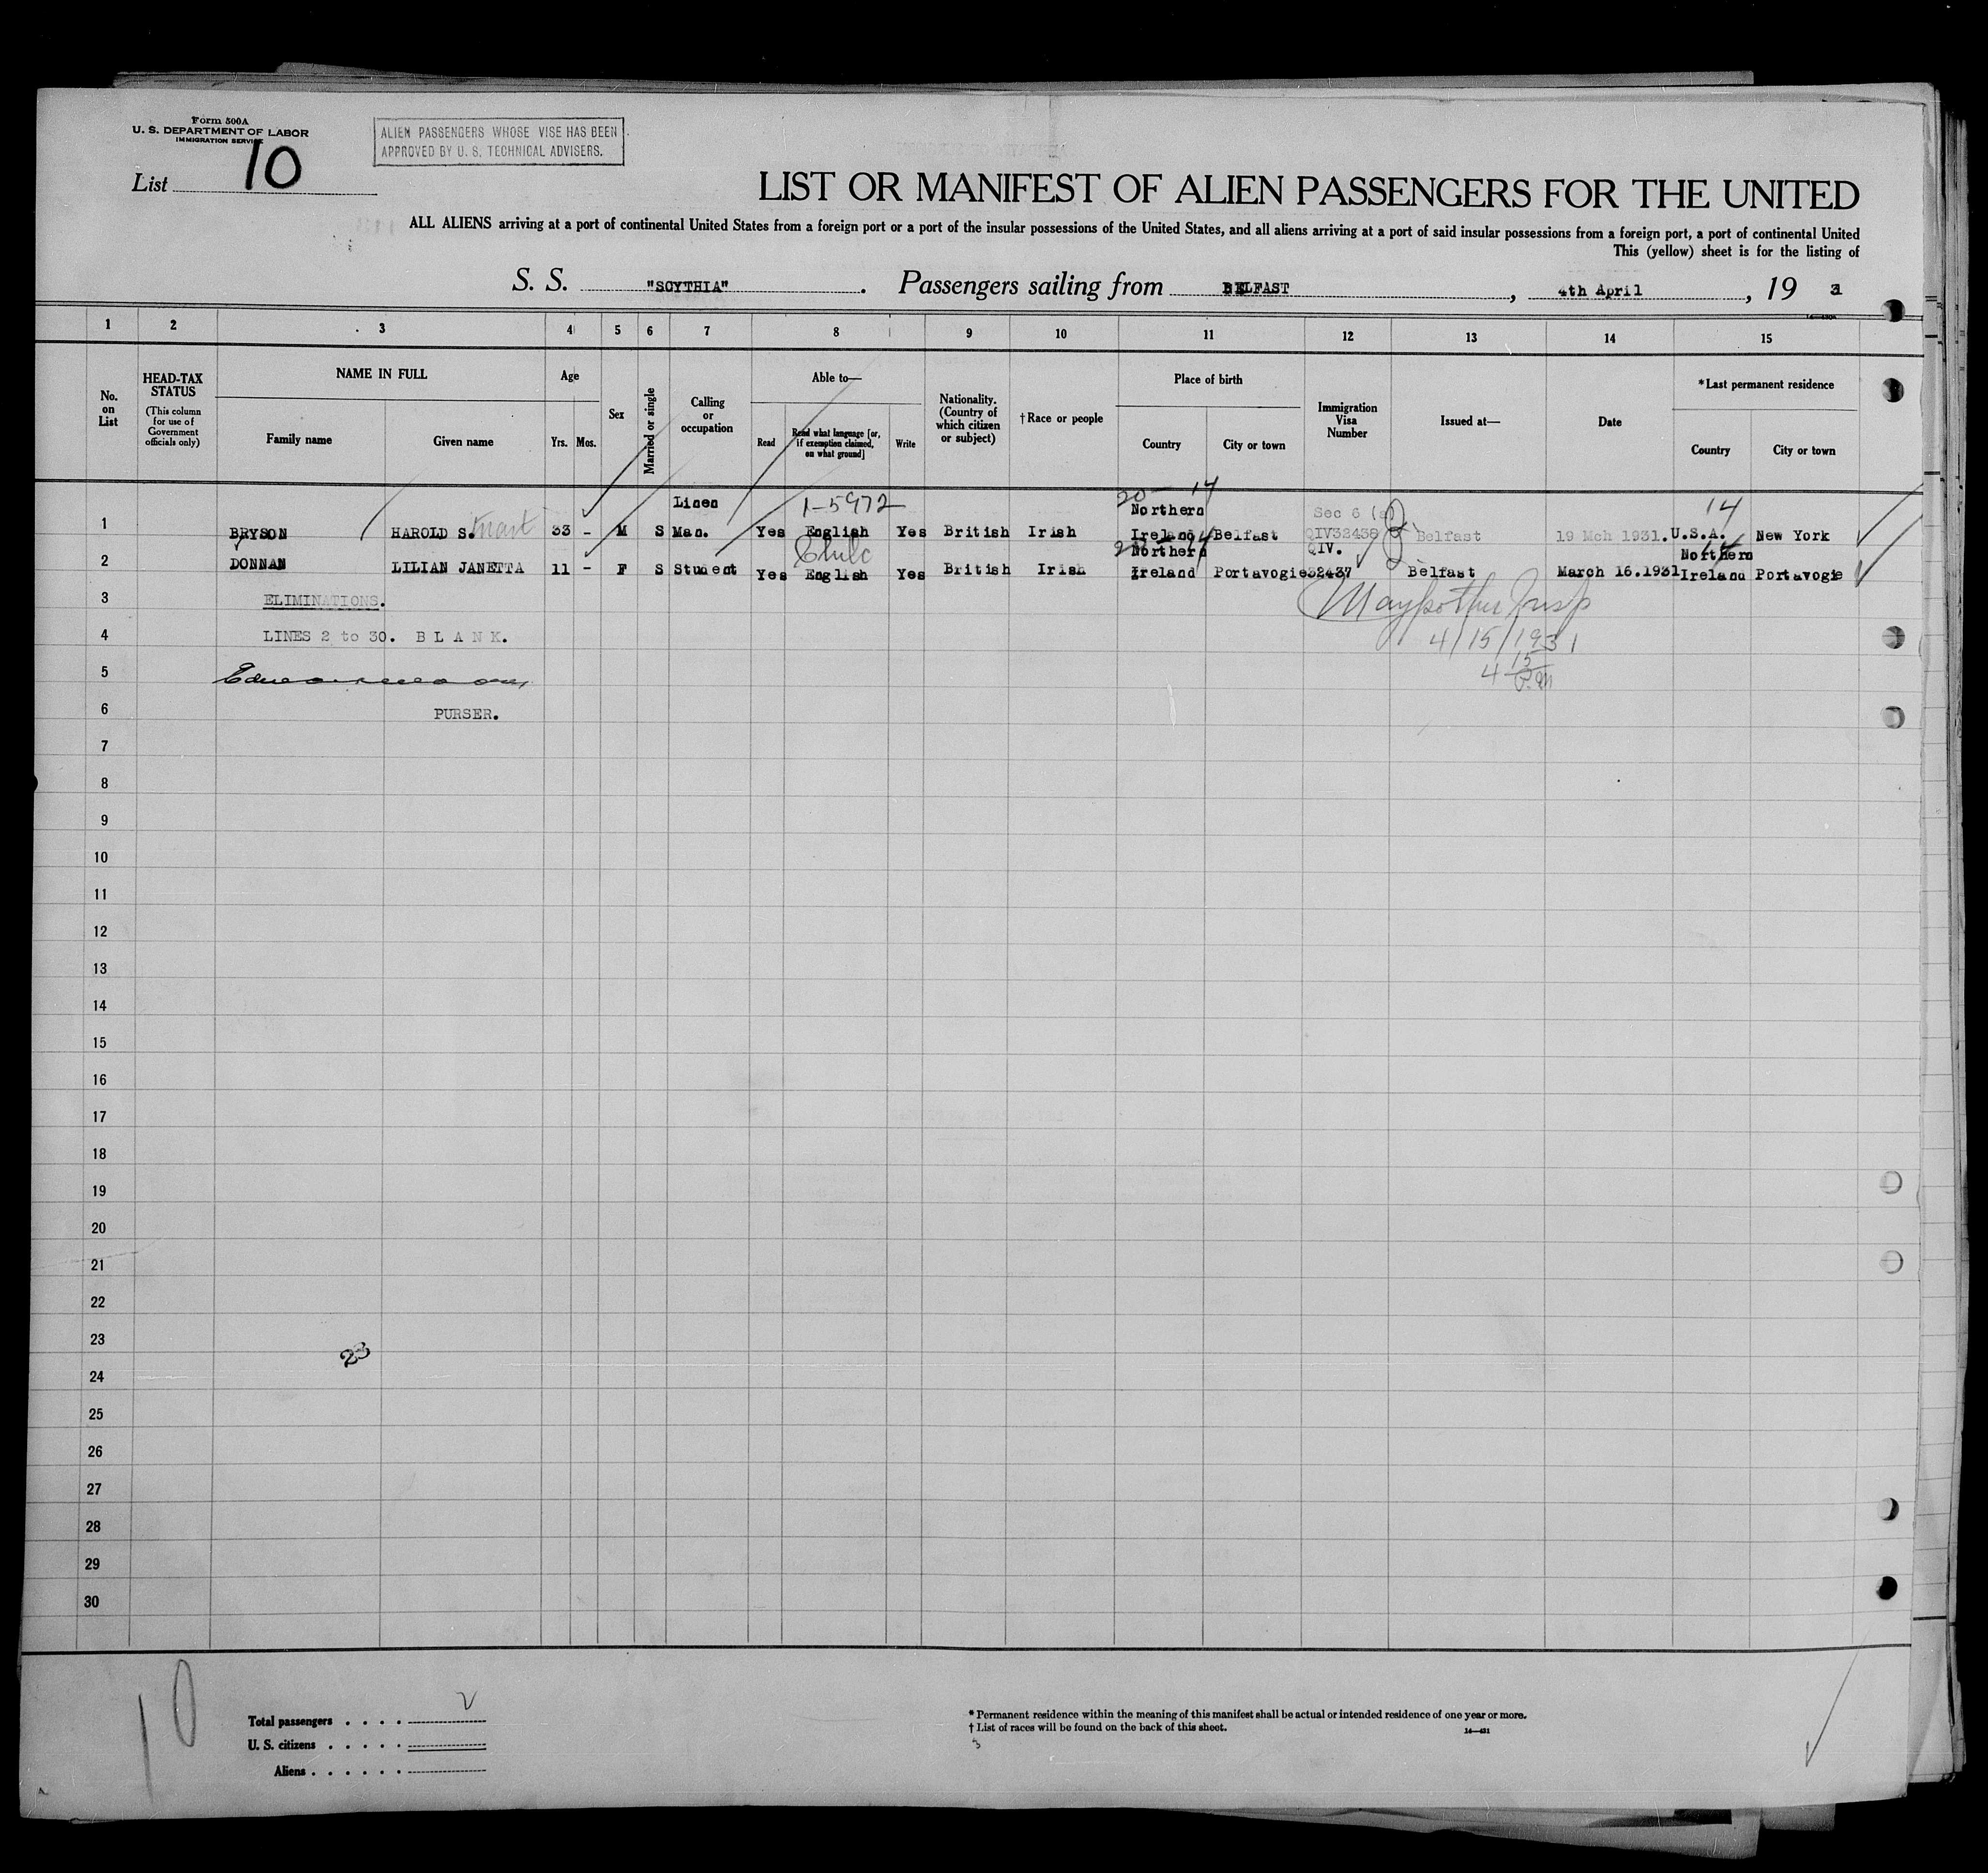 Form 500A
U. S. DEPARTMENT OF LABOR
IMMIGRATION SERVICE
ALIEN PASSENGERS WHOSE VISE HAS BEEN
APPROVED BY U. S. TECHNICAL ADVISERS.
List 10
LIST OR MANIFEST OF ALIEN PASSENGERS FOR THE UNITED
ALL ALIENS arriving at a port of continental United States from a foreign port or a port of the insular possessions of the United States, and all aliens arriving at a port of said insular possessions from a foreign port, a port of continental United
This (yellow) sheet is for the listing of
S. S. "SCYTHIA". Passengers sailing from BELFAST, 4th April, 19 31
1 2 3 4 5 6 7 8 9 10 11 12 13 14 15
No. on List
HEAD-TAX STATUS (This column for use of Government officials only)
NAME IN FULL
Family name Given name
Age
Yrs. Mos.
Sex
Married or single
Calling or occupation
Able to—
Read
Read what language [or, if exemption claimed, on what ground]
Write
Nationality. (Country of which citizen or subject)
† Race or people
Place of birth
Country City or town
Immigration Visa Number
Issued at—
Date
* Last permanent residence
Country City or town
Linen 1-5972 20- 14 Northern Sec 6 14
1 BRYSON HAROLD S. 33 - M S Man. Yes English Yes British Irish Ireland Belfast QIV32438 Belfast 19 Mch 1931. U.S.A. New York
Northern 14 QIV. Northern 14
2 DONNAN LILIAN JANETTA 11 - F S Student Yes English Yes British Irish Ireland Portavogie 32437 Belfast March 16.1931 Ireland Portavogie
3 ELIMINATIONS.
4 LINES 2 to 30. B L A N K. 4/15/1931
5 4 15 P.M
6 PURSER.
7
8
9
10
11
12
13
14
15
16
17
18
19
20
21
22
23
23
24
25
26
27
28
29
30
10
Total passengers . . . . 2
U. S. citizens . . . . .
Aliens . . . . . .
* Permanent residence within the meaning of this manifest shall be actual or intended residence of one year or more.
† List of races will be found on the back of this sheet.
14—421